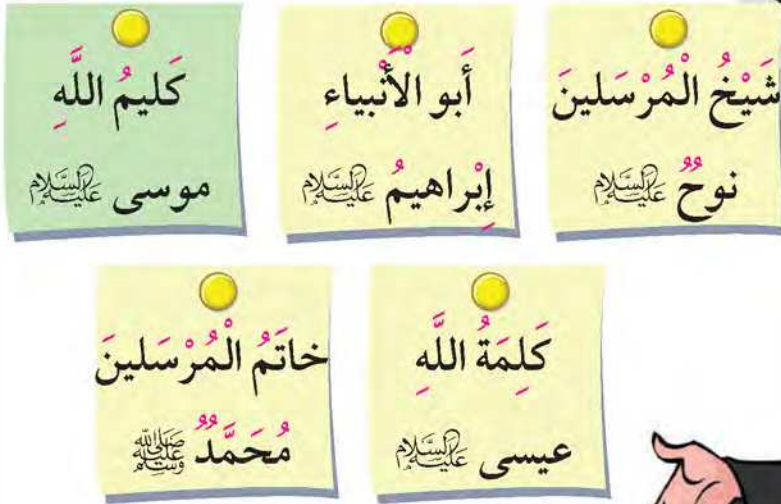 شَيْخُ الْمُرْسَلينَ
نوحٌ عَلَيْهِ السَّلَام
أَبو الْأَنْبياءِ
إِبْراهيمُ عَلَيْهِ السَّلَام
كَليمُ اللَّهِ
موسى عَلَيْهِ السَّلَام
كَلِمَةُ اللَّهِ
عيسى عَلَيْهِ السَّلَام
خاتَمُ الْمُرْسَلينَ
مُحَمَّدٌ ﷺ